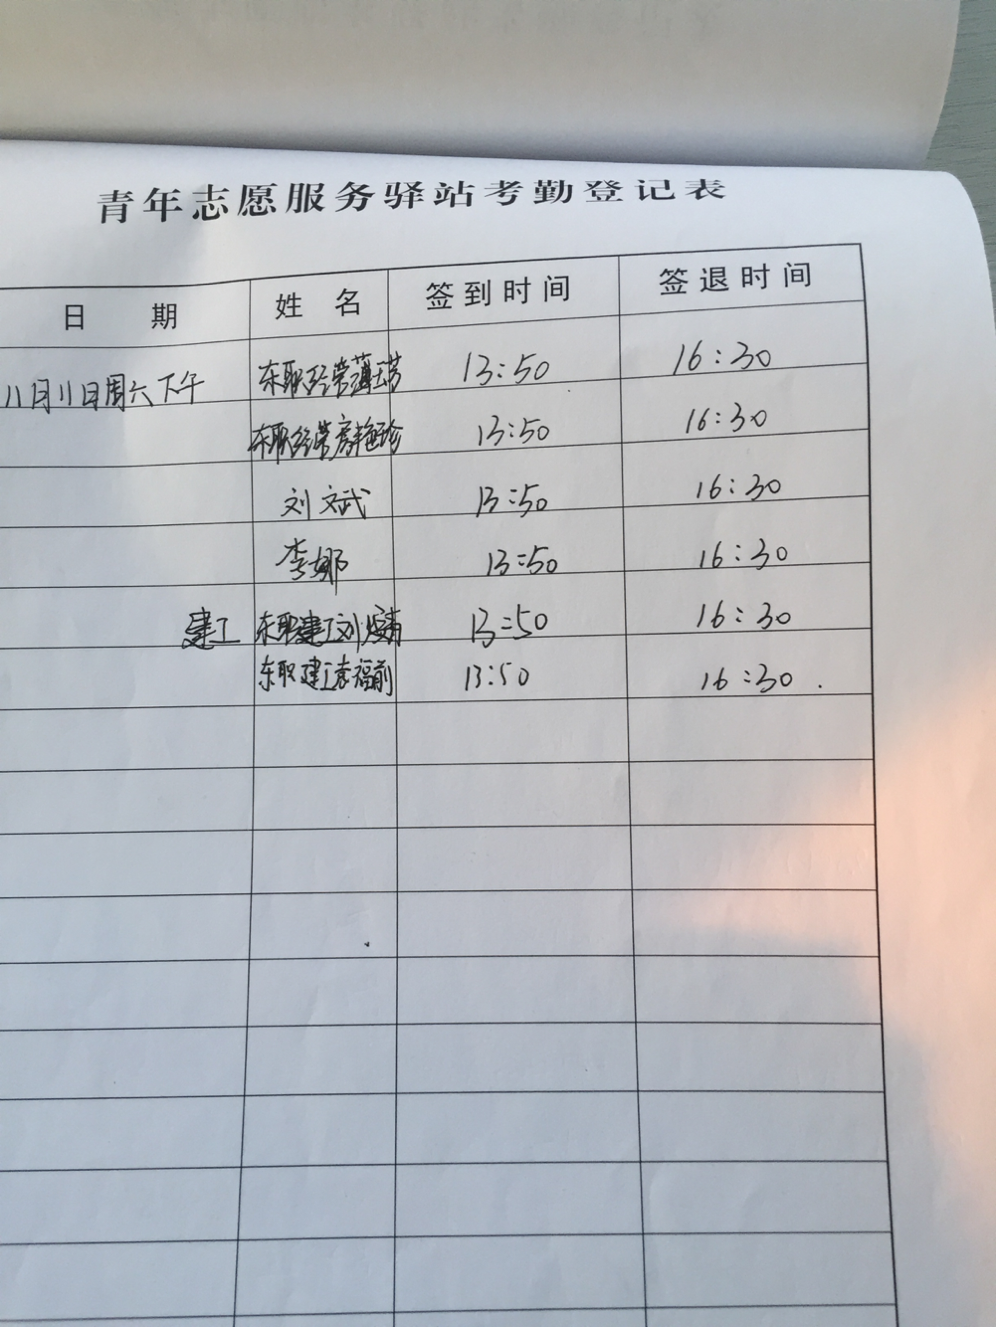 青年志愿服务驿站考勤登记表
日 期 姓 名 签到时间 签退时间
11月11日周六下午 东职经营薄 13:50 16:30
东职经营房艳珍 13:50 16:30
刘文斌 13:50 16:30
李娜 13:50 16:30
建工 东职建工刘 13:50 16:30
东职建工袁福前 13:50 16:30.